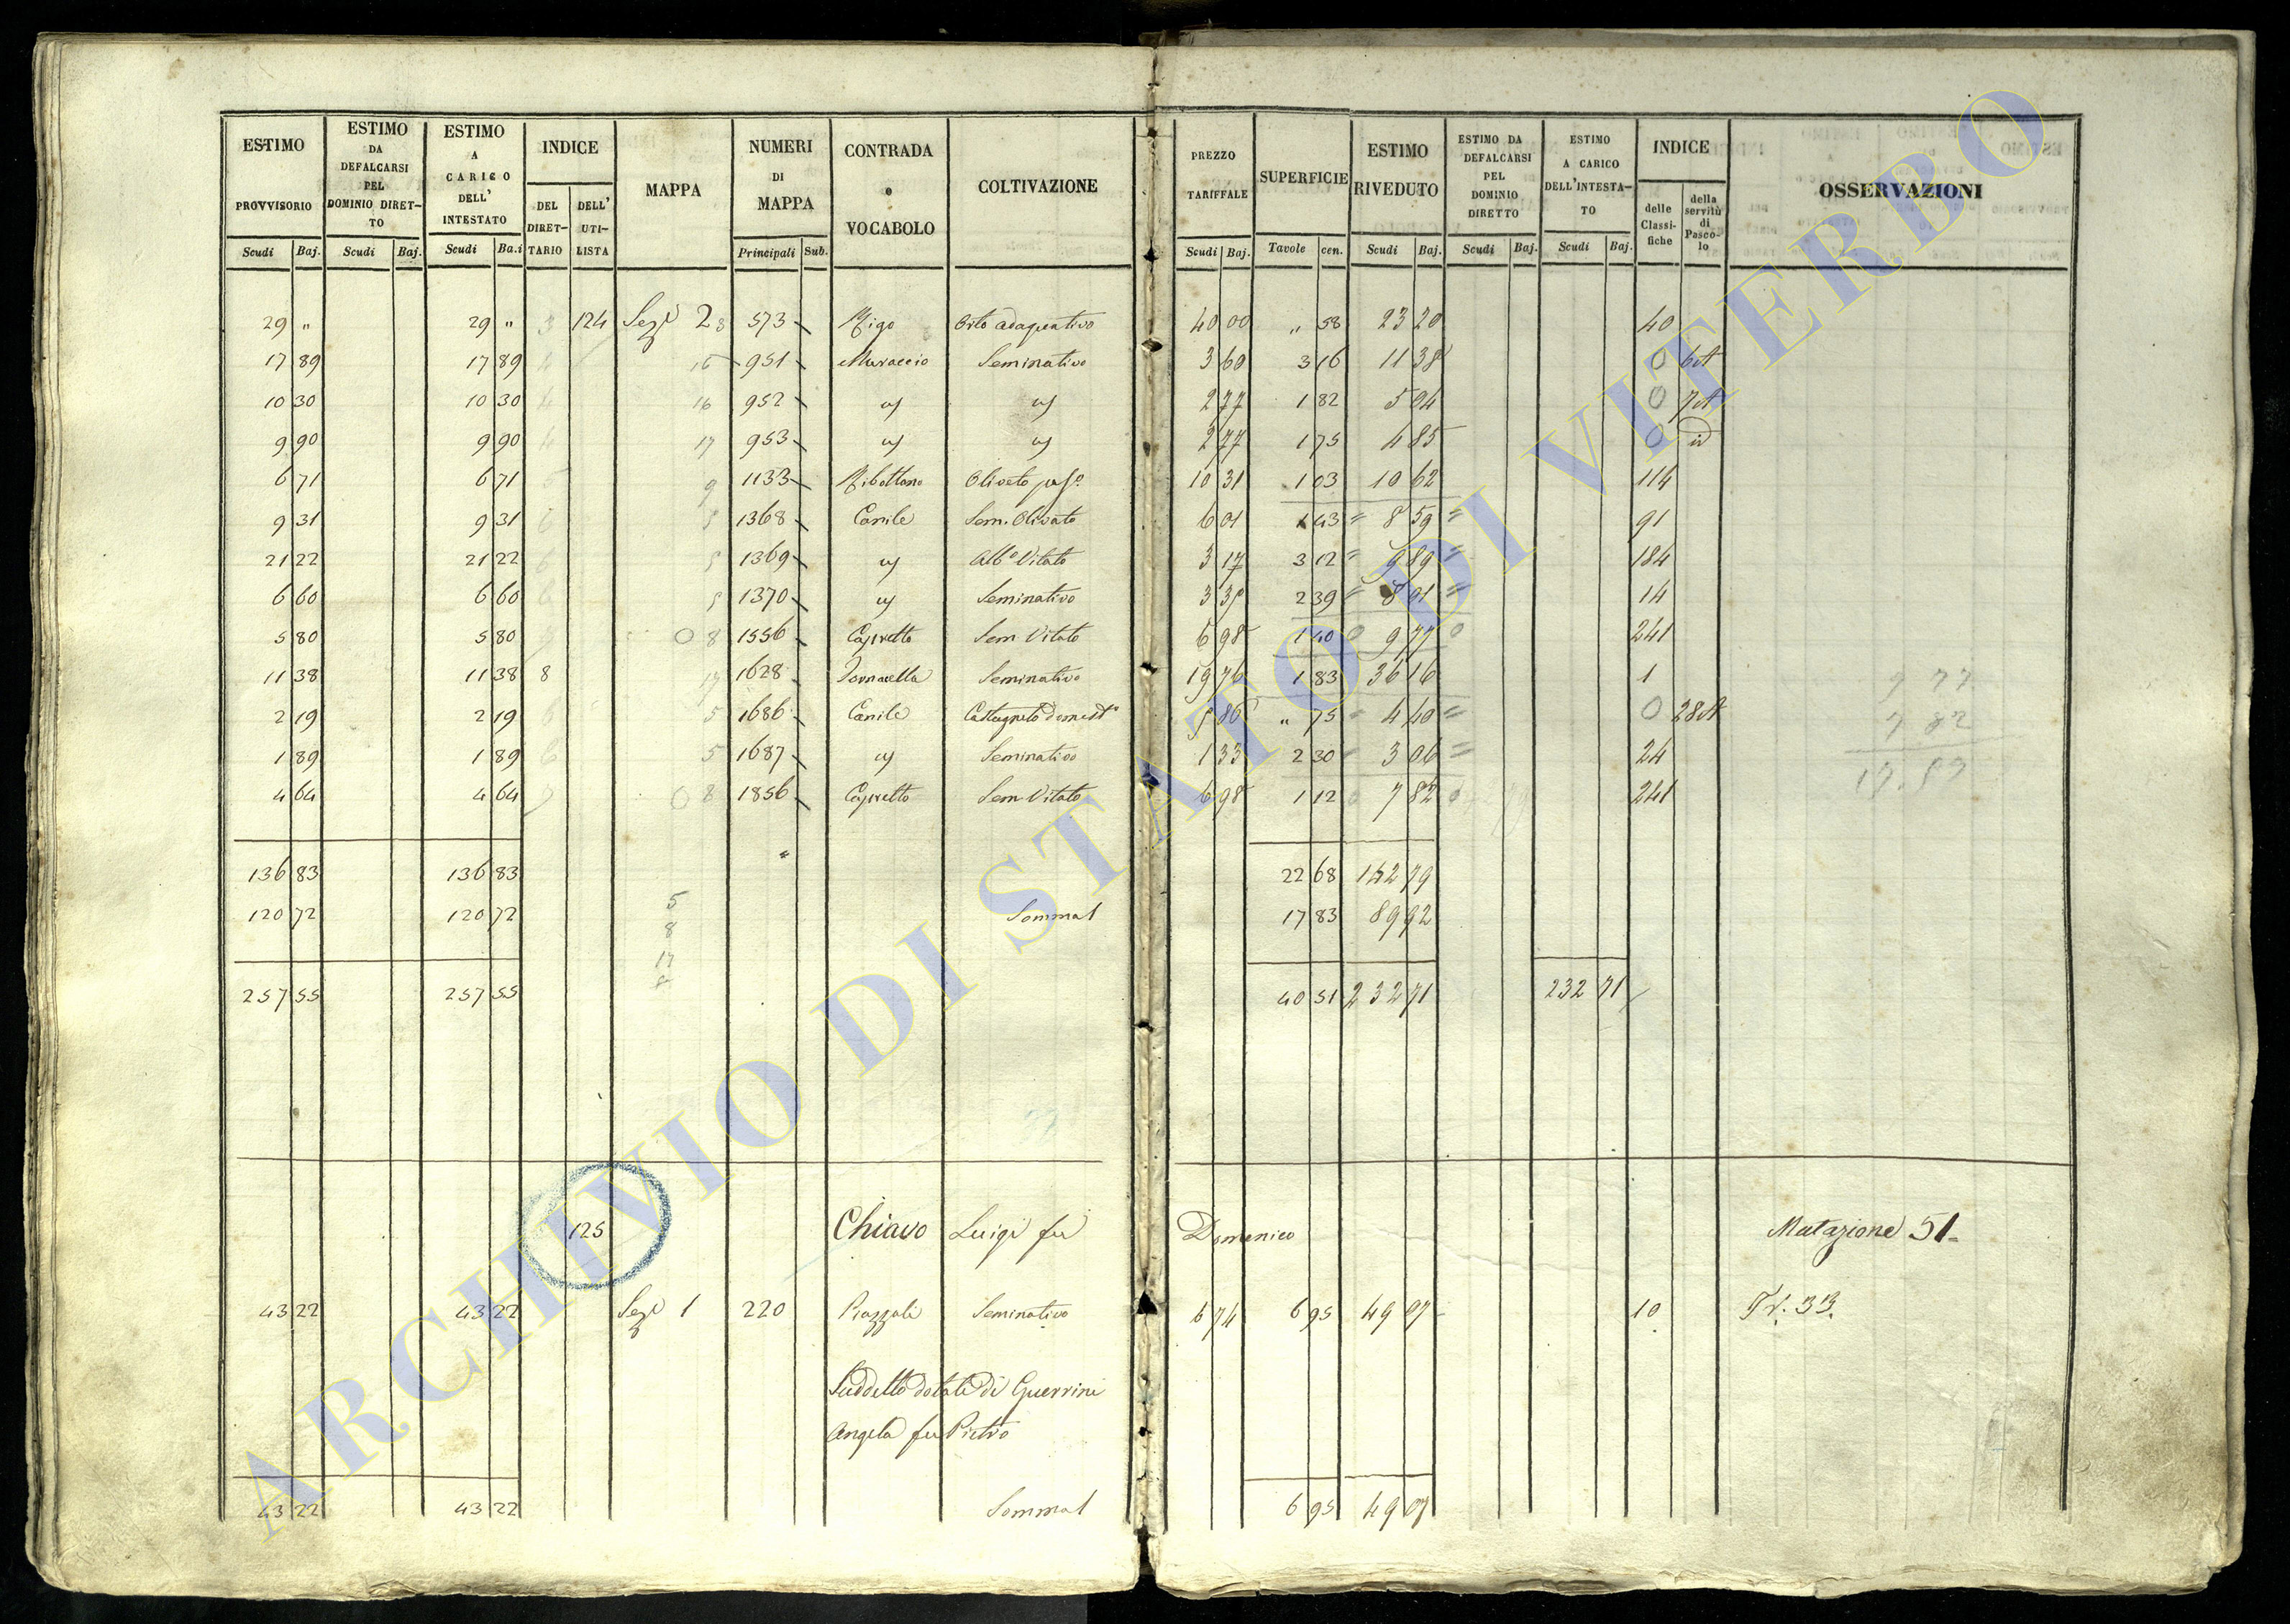 ESTIMO PROVVISORIO | ESTIMO DA DEFALCARSI PEL DOMINIO DIRETTO | ESTIMO A CARICO DELL' INTESTATO | INDICE | MAPPA | NUMERI DI MAPPA | CONTRADA o VOCABOLO | COLTIVAZIONE | PREZZO TARIFFALE | SUPERFICIE | ESTIMO RIVEDUTO | ESTIMO DA DEFALCARSI PEL DOMINIO DIRETTO | ESTIMO A CARICO DELL'INTESTATO | INDICE | OSSERVAZIONI
DEL DIRETTARIO | DELL' UTILISTA | delle Classifiche | della servitù di Pascolo
Scudi | Baj. | Scudi | Baj. | Scudi | Ba.i | Principali | Sub. | Scudi | Baj. | Tavole | cen. | Scudi | Baj. | Scudi | Baj. | Scudi | Baj.
29 " | 29 " | 3 | 124 | Sezе 2 8 | 573 | Rigo | Orto adaquativo | 40 00 | " 58 | 23 20 | 40
17 89 | 17 89 | 4 | 15 | 951 | Muraccio | Seminativo | 3 60 | 3 16 | 11 38 | 0 | 6A
10 30 | 10 30 | 4 | 16 | 952 | 2 77 | 1 82 | 5 04 | 0 | 7A
9 90 | 9 90 | 4 | 17 | 953 | 2 77 | 1 75 | 4 85 | 0 | id
6 71 | 6 71 | 5 | 9 | 1133 | Ribottano | Oliveto | 10 31 | 1 03 | 10 62 | 114
9 31 | 9 31 | 6 | 5 | 1368 | Canile | Sem. Olivato | 6 01 | 1 43 = | 8 59 = | 91
21 22 | 21 22 | 6 | 5 | 1369 | Albo Vitato | 3 17 | 3 12 = | 9 89 = | 184
6 60 | 6 60 | 6 | 5 | 1370 | Seminativo | 3 35 | 2 39 = | 8 01 = | 14
5 80 | 5 80 | 7 | 0 8 | 1556 | Capretto | Sem Vitato | 6 98 | 1 40 0 | 9 77 0 | 241
11 38 | 11 38 | 8 | 17 | 1628 | Fornacella | Seminativo | 19 76 | 1 83 | 36 16 | 1
2 19 | 2 19 | 6 | 5 | 1686 | Canile | Castagneto domest.o | 5 86 | " 75 = | 4 40 = | 0 | 28A | 9 77
1 89 | 1 89 | 6 | 5 | 1687 | Seminativo | 1 33 | 2 30 = | 3 06 = | 24 | 7 82
4 64 | 4 64 | 7 | 0 8 | 1856 | Capretto | Sem. Vitato | 6 98 | 1 12 0 | 7 82 0 | 241 | 17.59
136 83 | 136 83 | 22 68 | 142 79
120 72 | 120 72 | 5 | Sommat | 17 83 | 89 92
8
17
8
257 55 | 257 55 | 40 51 | 232 71 | 232 71
125 | Chiavo Luigi fu Domenico | Mutazione 51
43 22 | 43 22 | Seze 1 | 220 | Piazzale | Seminativo | 6 74 | 6 95 | 49 07 | 10 | Tr. 33.
Suddetto dotale di Guerrini
Angela fu Pietro
43 22 | 43 22 | Sommat | 6 95 | 49 07
ARCHIVIO DI STATO DI VITERBO